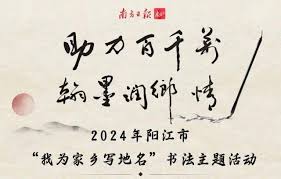 南方日报
助力百千萬
翰墨润鄉情
2024年阳江市
“我为家乡写地名”书法主题活动